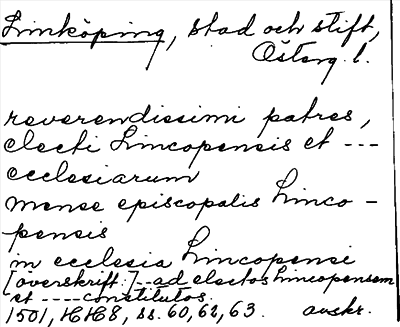 Linköping, stad och stift,
Österg. l.
reverendissimi patres,
electi Lincopensis et ---
ecclesiarum
mense episcopalis Linco-
pensis
in ecclesia Lincopensi
[överskrift:] --ad electos Lincopensem
et ----constitutos.
1501, HH8, ss. 60, 62, 63. avskr.